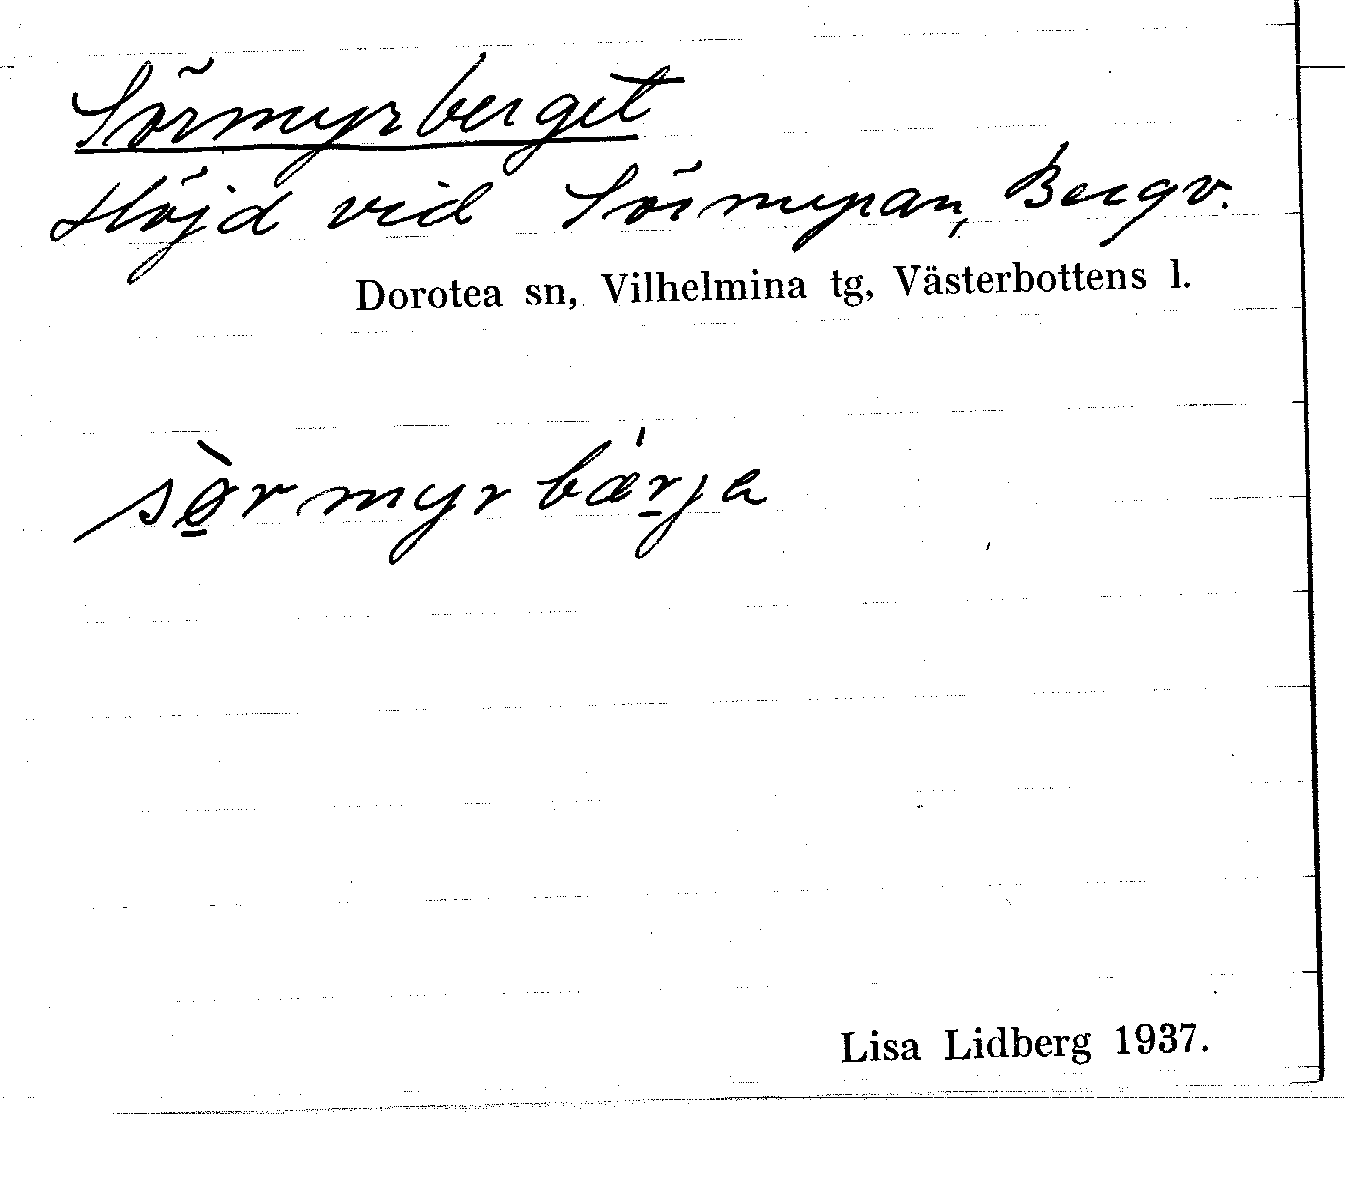 Sörmyrberget
Höjd vid Sörmyran, Bergv.
Dorotea sn, Vilhelmina tg, Västerbottens l.
sø̠̀rmyrbæŕ̠ja
Lisa Lidberg 1937.